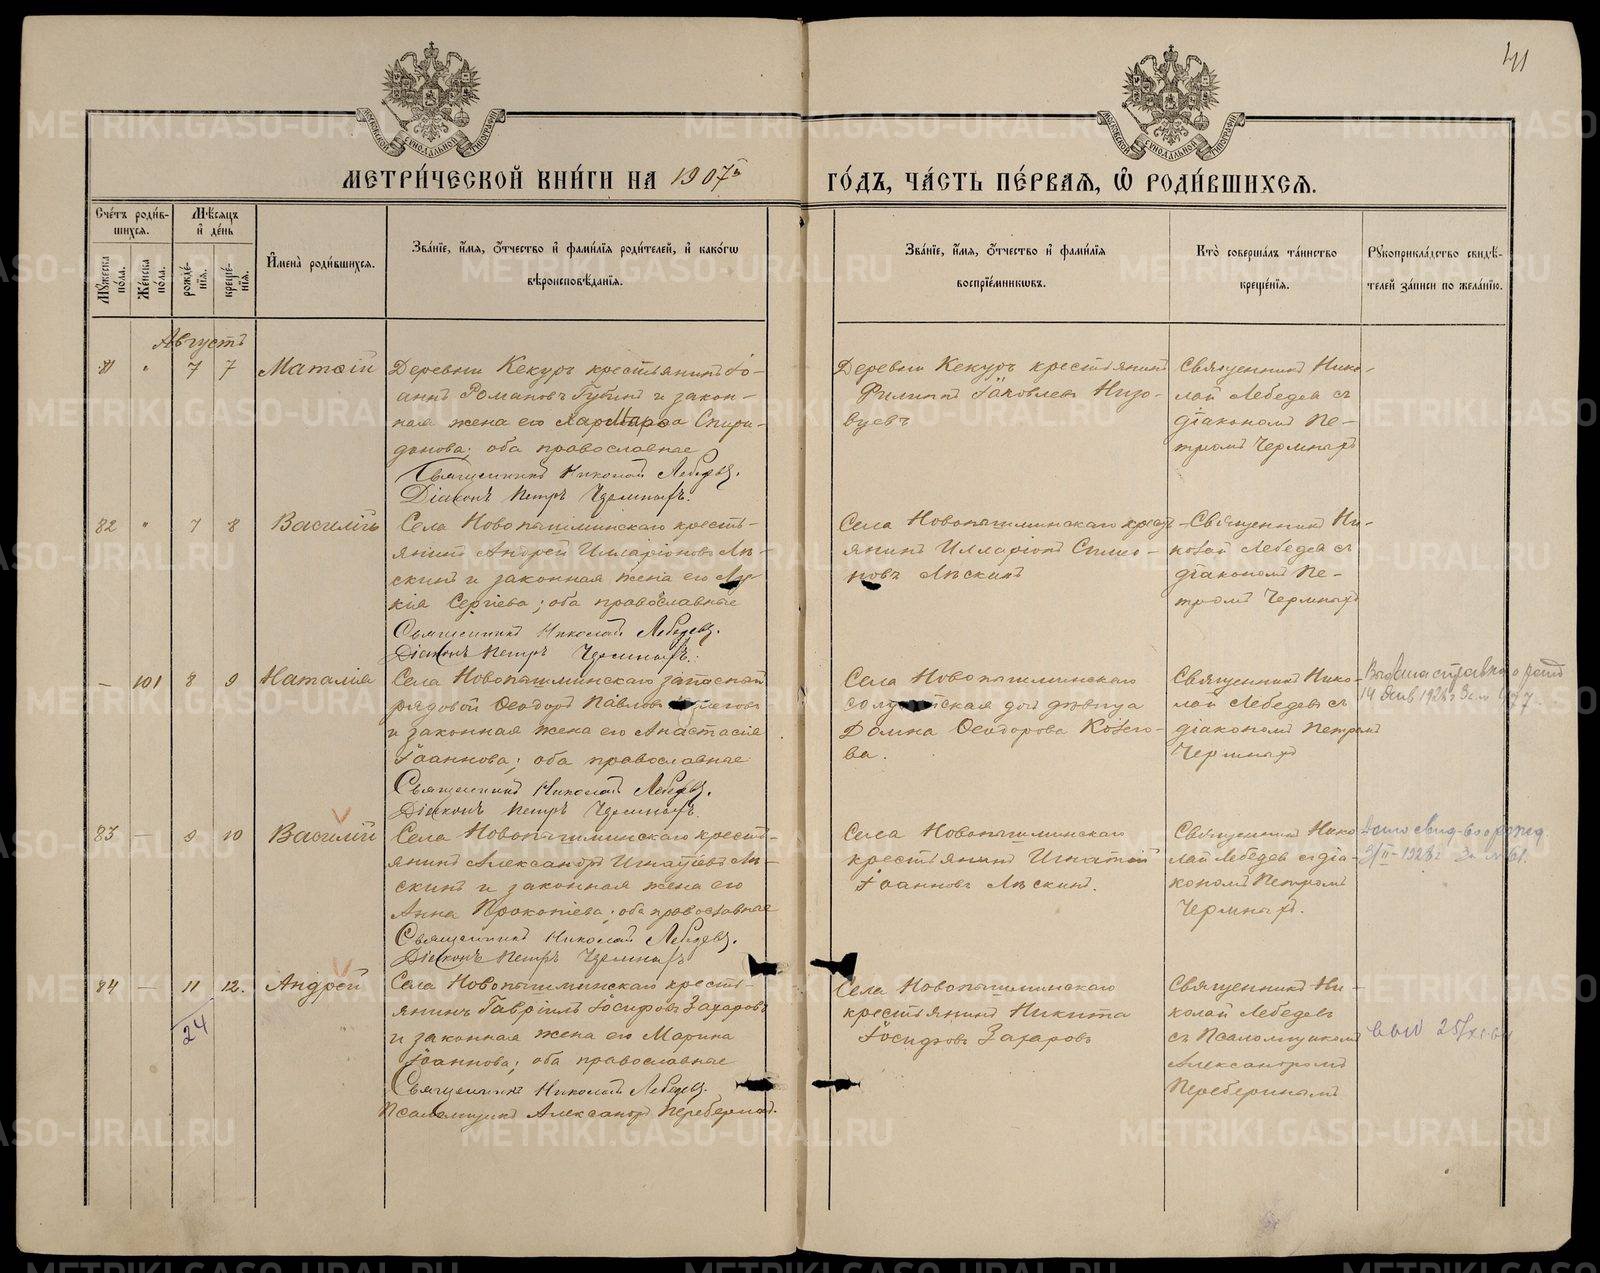 41
МЕТРИ́ЧЕСКОЙ КНИ́ГИ НА 1907й ГО́ДЪ, ЧА́СТЬ ПЕ́РВАѦ, Ѡ҆ РОДИ́ВШИХСѦ.
Сче́тъ роди́в-
шихсѧ.
Мѣ́сѧцъ
и҆ де́нь
Мꙋ́жеска по́ла.
Же́нска по́ла.
рожде́-
нїѧ.
креще́-
нїѧ.
И҆мена̀ роди́вшихсѧ.
Зва́нїе, и҆́мѧ, ѻ҆́тчество и҆ фами́лїѧ роди́телей, и҆ како́гѡ
вѣроисповѣ́данїѧ.
Зва́нїе, и҆́мѧ, ѻ҆́тчество и҆ фами́лїѧ
воспрїе́мникѡвъ.
Кто̀ соверша́лъ та́инство
креще́нїѧ.
Рꙋкоприкла́дство свидѣ́-
телей за́писи по жела́нїю.
Августъ
81 " 7 7 Матѳій
Деревни Кекуръ крестьянинъ Іо-
аннъ Романовъ Губинъ и закон-
ная жена его Спири-
донова; оба православные
Священникъ Николай Лебедевъ.
Діаконъ Петръ Чермныхъ.
Деревни Кекуръ крестьянинъ
Филиппъ Іаковлевъ Низо-
вцевъ
Священникъ Нико-
лай Лебедевъ съ
діакономъ Пе-
тромъ Чермныхъ
82 " 7 8 Василій
Села Новопышминскаго кресть-
янинъ Андрей Илларіоновъ Лѣ-
скинъ и законная жена его Лу-
кія Сергіева; оба православные
Священникъ Николай Лебедевъ.
Діаконъ Петръ Чермныхъ.
Села Новопышминскаго кресть-
янинъ Илларіонъ Симео-
новъ Лѣскинъ
Священникъ Ни-
колай Лебедевъ съ
діакономъ Пе-
тромъ Чермныхъ
— 101 8 9 Наталія
Села Новопышминскаго запасный
рядовой Ѳеодоръ Павловъ
и законная жена его Анастасія
Іоаннова; оба православные
Священникъ Николай Лебедевъ.
Діаконъ Петръ Чермныхъ.
Села Новопышминскаго
солдатская дочь дѣвица
Домна Ѳеодорова Козло-
ва.
Священникъ Нико-
лай Лебедевъ съ
діакономъ Петромъ
Чермныхъ
Выдана справка о рожд
14 1928 г За № 477.
83 — 9 10 Василій
Села Новопышминскаго кресть-
янинъ Александръ Игнатіевъ Лѣ-
скинъ и законная жена его
Анна Прокопіева; оба православные
Священникъ Николай Лебедевъ.
Діаконъ Петръ Чермныхъ
Села Новопышминскаго
крестьянинъ Игнатій
Іоанновъ Лѣскинъ.
Священникъ Нико
лай Лебедевъ съ діа-
кономъ Петромъ
Чермныхъ.
Дано свид-во о рожд.
3/II-1928г За № 61.
84 — 11 12. Андрей
24
Села Новопышминскаго кресть-
янинъ Гавріилъ Іосифовъ Захаровъ
и законная жена его Марина
Іоаннова; оба православные
Священникъ Николай Лебедевъ.
Псаломщикъ Александръ Переберинъ.
Села Новопышминскаго
крестьянинъ Никита
Іосифовъ Захаровъ
Священникъ Ни-
колай Лебедевъ
съ Псаломщикомъ
Александромъ
Переберинымъ
METRIKI.GASO-URAL.RU